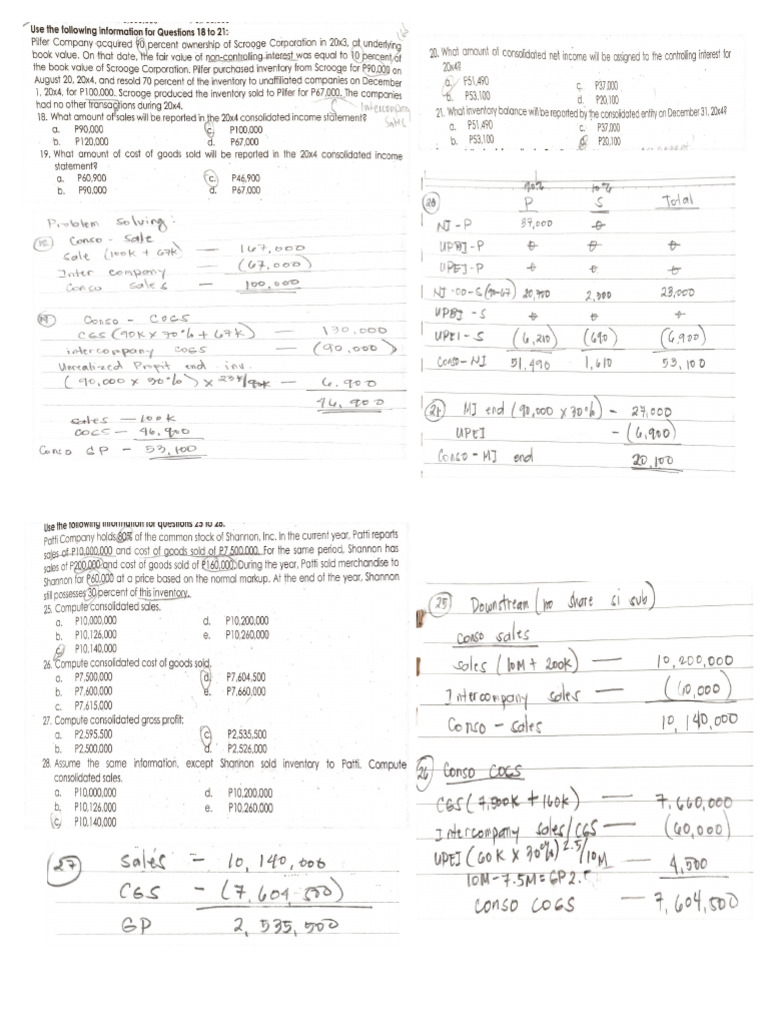 Use the following information for Questions 18 to 21:
Pilfer Company acquired 90 percent ownership of Scrooge Corporation in 20x3, at underlying
book value. On that date, the fair value of non-controlling interest was equal to 10 percent of
the book value of Scrooge Corporation. Pilfer purchased inventory from Scrooge for P90,000 on
August 20, 20x4, and resold 70 percent of the inventory to unaffiliated companies on December
1, 20x4, for P100,000. Scrooge produced the inventory sold to Pilfer for P67,000. The companies
had no other transactions during 20x4.
Intercompany
Sale
18. What amount of sales will be reported in the 20x4 consolidated income statement?
a. P90,000 c. P100,000
b. P120,000 d. P67,000
19. What amount of cost of goods sold will be reported in the 20x4 consolidated income
statement?
a. P60,900 c. P46,900
b. P90,000 d. P67,000
Problem Solving:
18 Conso - Sale
Sale (100k + 67k) — 167,000
Inter company (67,000)
Conso sales — 100,000
19 Conso - COGS
CGS (90K x 70% + 67k) — 130,000
intercompany COGS — (90,000)
Unrealized Profit end inv.
(90,000 x 30%) x 23k/90k — 6,900
46,900
sales — 100k
COGS — 46,900
Conso GP — 53,100
20. What amount of consolidated net income will be assigned to the controlling interest for
20x4?
a. P51,490 c. P37,000
b. P53,100 d. P20,100
21. What inventory balance will be reported by the consolidated entity on December 31, 20x4?
a. P51,490 c. P37,000
b. P53,100 d. P20,100
90% 10%
20 P S Total
NI - P 37,000
UPBI - P
UPEI - P
NI - CO - S (90-67) 20,700 2,300 23,000
UPBI - S
UPEI - S (6,210) (690) (6,900)
Conso - NI 51,490 1,610 53,100
21 MI end (90,000 x 30%) - 27,000
UPEI - (6,900)
Conso - MI end 20,100
Use the following information for questions 25 to 28.
Patti Company holds 80% of the common stock of Shannon, Inc. In the current year, Patti reports
sales of P10,000,000 and cost of goods sold of P7,500,000. For the same period, Shannon has
sales of P200,000 and cost of goods sold of P160,000. During the year, Patti sold merchandise to
Shannon for P60,000 at a price based on the normal markup. At the end of the year, Shannon
still possesses 30 percent of this inventory.
25. Compute consolidated sales.
a. P10,000,000 d. P10,200,000
b. P10,126,000 e. P10,260,000
c. P10,140,000
26. Compute consolidated cost of goods sold.
a. P7,500,000 d. P7,604,500
b. P7,600,000 e. P7,660,000
c. P7,615,000
27. Compute consolidated gross profit:
a. P2,595,500 c. P2,535,500
b. P2,500,000 d. P2,526,000
28. Assume the same information, except Shannon sold inventory to Patti. Compute
consolidated sales.
a. P10,000,000 d. P10,200,000
b. P10,126,000 e. P10,260,000
c. P10,140,000
27 Sales = 10,140,000
CGS - (7,604,500)
GP 2,535,500
25 Downstream (no share si sub)
Conso sales
Sales (10M + 200k) — 10,200,000
Intercompany sales — (60,000)
Conso - sales 10,140,000
26 Conso COGS
CGS (7,500k + 160k) — 7,660,000
Intercompany sales/CGS — (60,000)
UPEI (60K x 30%) 2.5/10M — 4,500
10M - 7.5M = GP 2.5
Conso COGS — 7,604,500